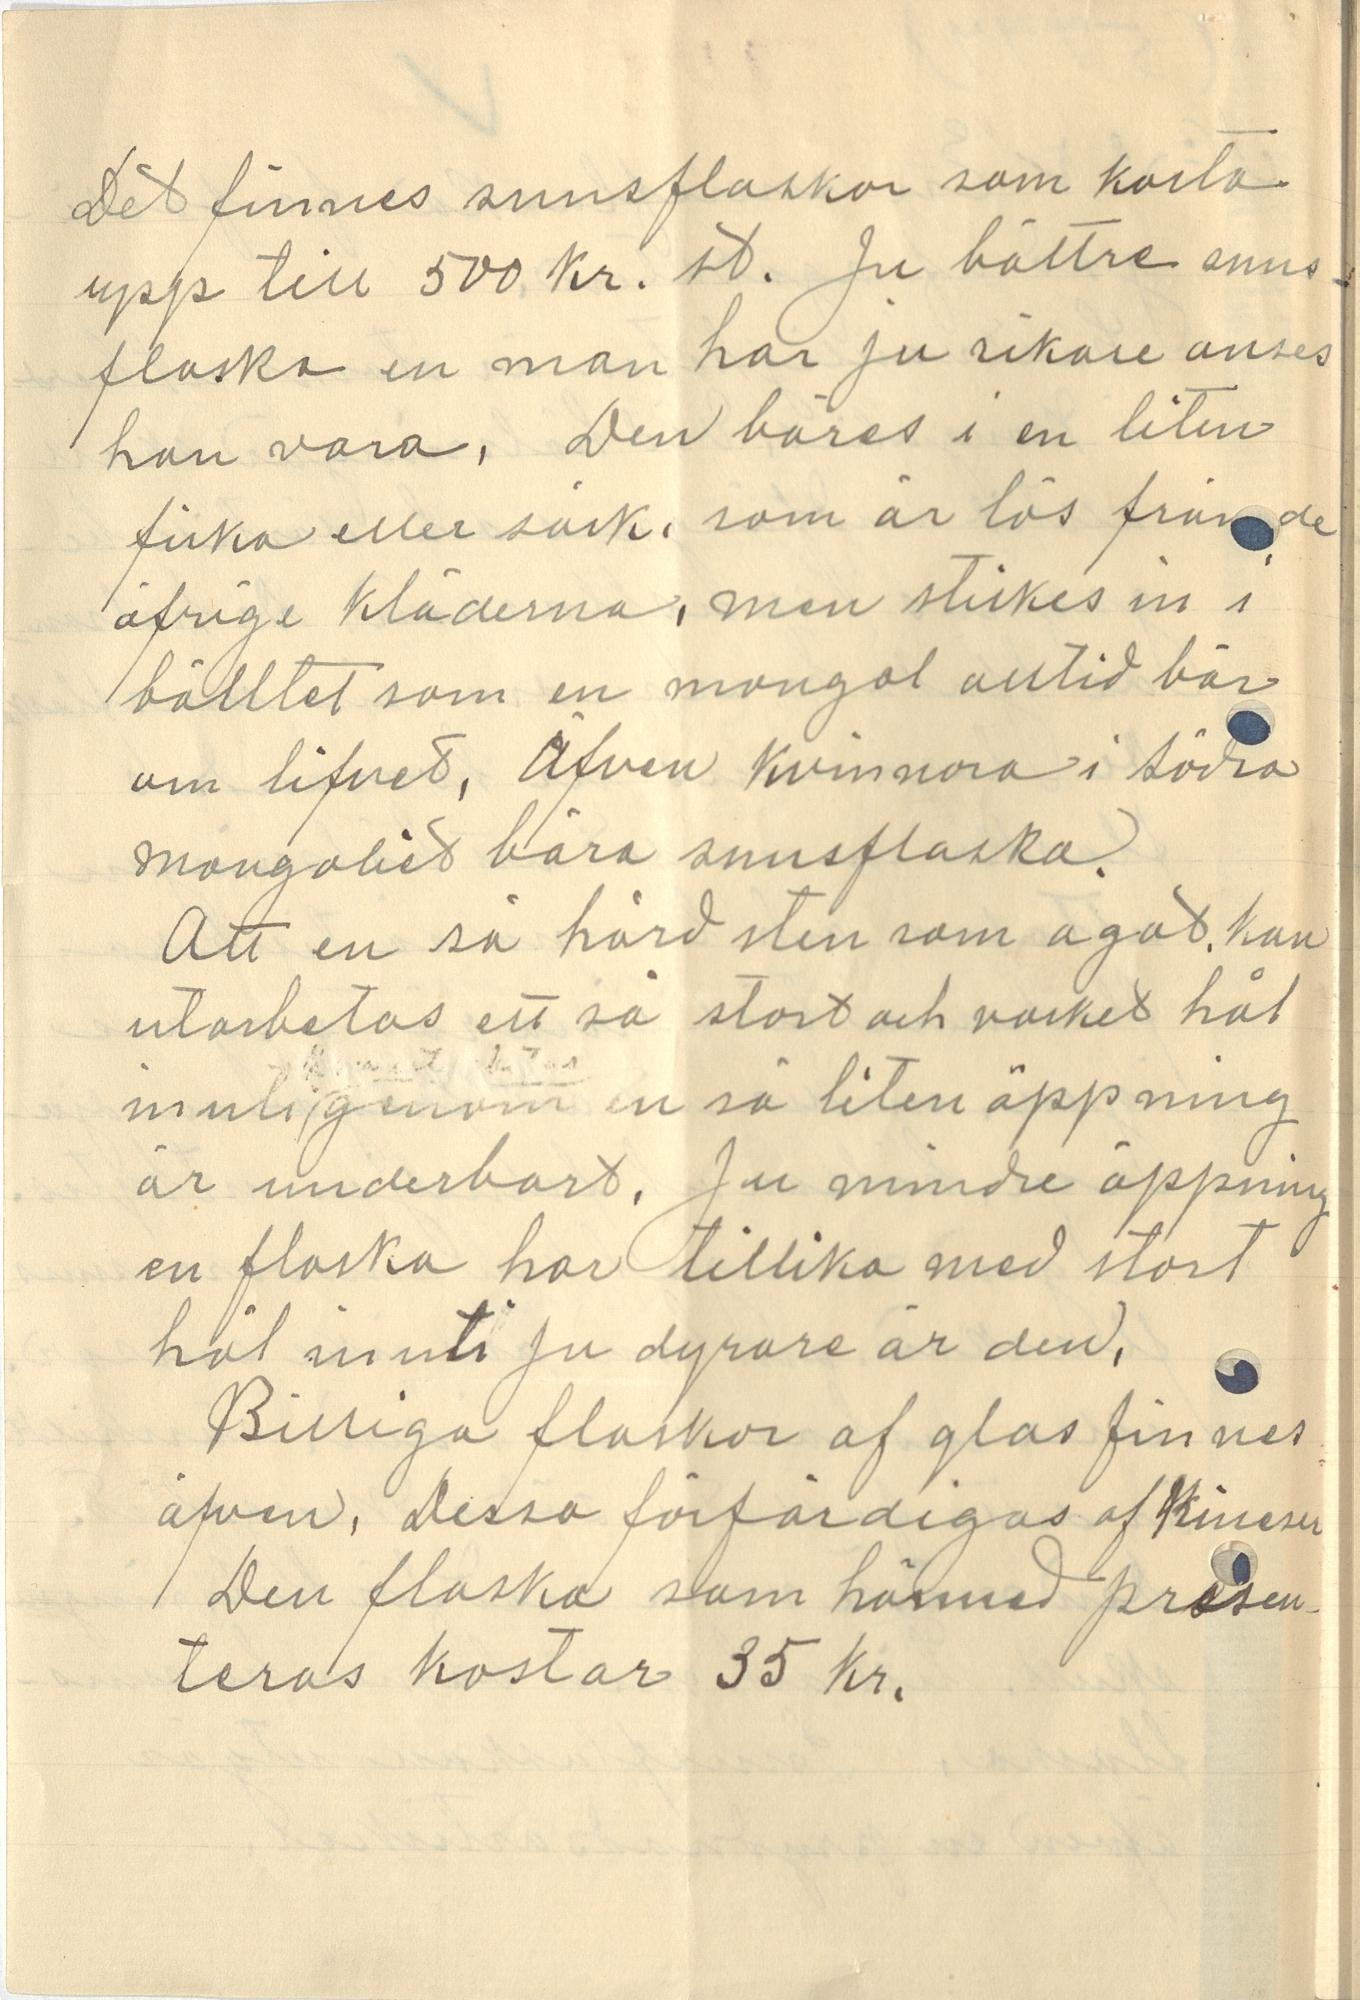 Det finnes snusflaskor som kosta
upp till 500 Kr. st. Ju bättre snus-
flaska en man har ju rikare anses
han vara. Den bäres i en liten
ficka eller säck, som är lös från de
öfrige kläderna, men stickes in i
bälltet som en mongol alltid bär
om lifvet. Äfven kvinnora i södra
mongoliet bära snusflaska.
Att en så hård sten som agat, kan
utarbetas ett så stort och vacket hål
inuti genom en så liten öppning
är underbart. Ju mindre öppning
en flaska har tillika med stort
hål inuti ju dyrare är den.
Billiga flaskor af glas finnes
äfven. Dessa förfärdigas af Kineser
Den flaska som härmed presen-
teras kostar 35 Kr.